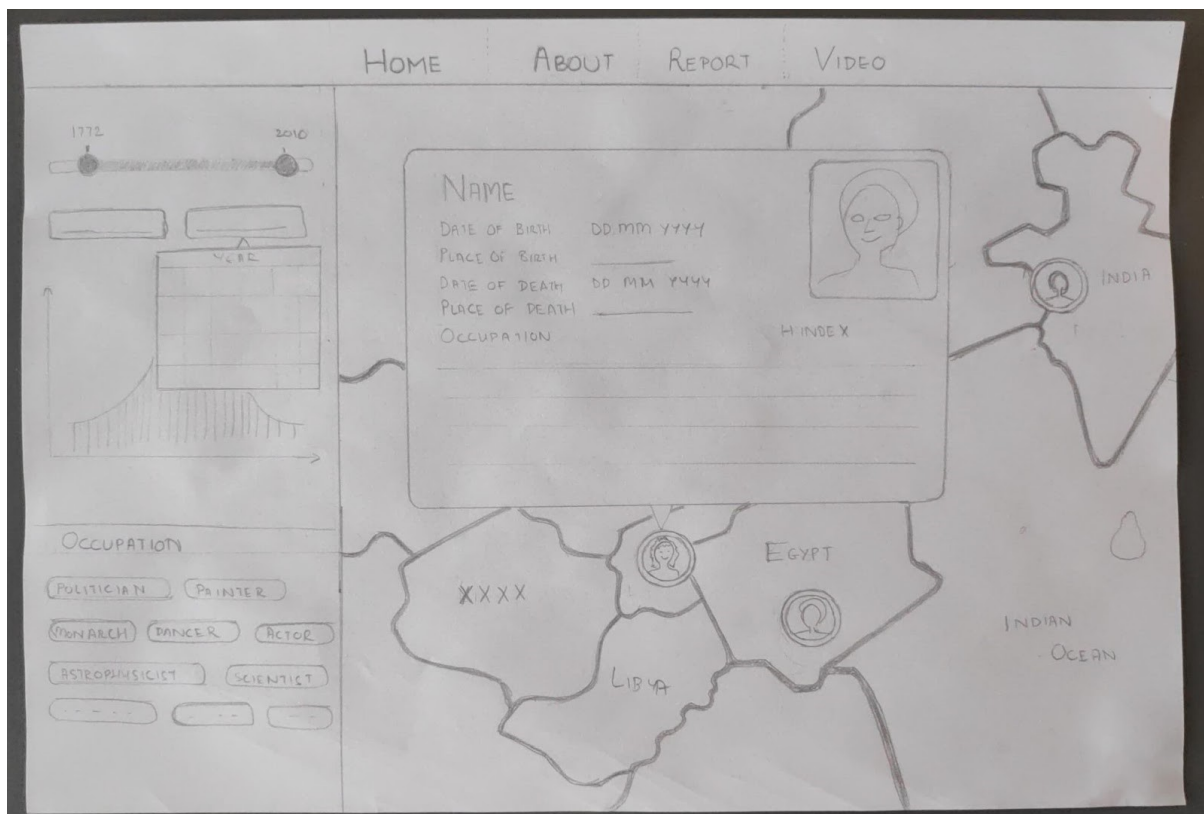 HOME ABOUT REPORT VIDEO
1772 2010
YEAR
OCCUPATION
POLITICIAN PAINTER
MONARCH DANCER ACTOR
ASTROPHYSICIST SCIENTIST
NAME
DATE OF BIRTH DD MM YYYY
PLACE OF BIRTH
DATE OF DEATH DD MM YYYY
PLACE OF DEATH
OCCUPATION H INDEX
INDIA
XXXX
EGYPT
LIBYA
INDIAN
OCEAN